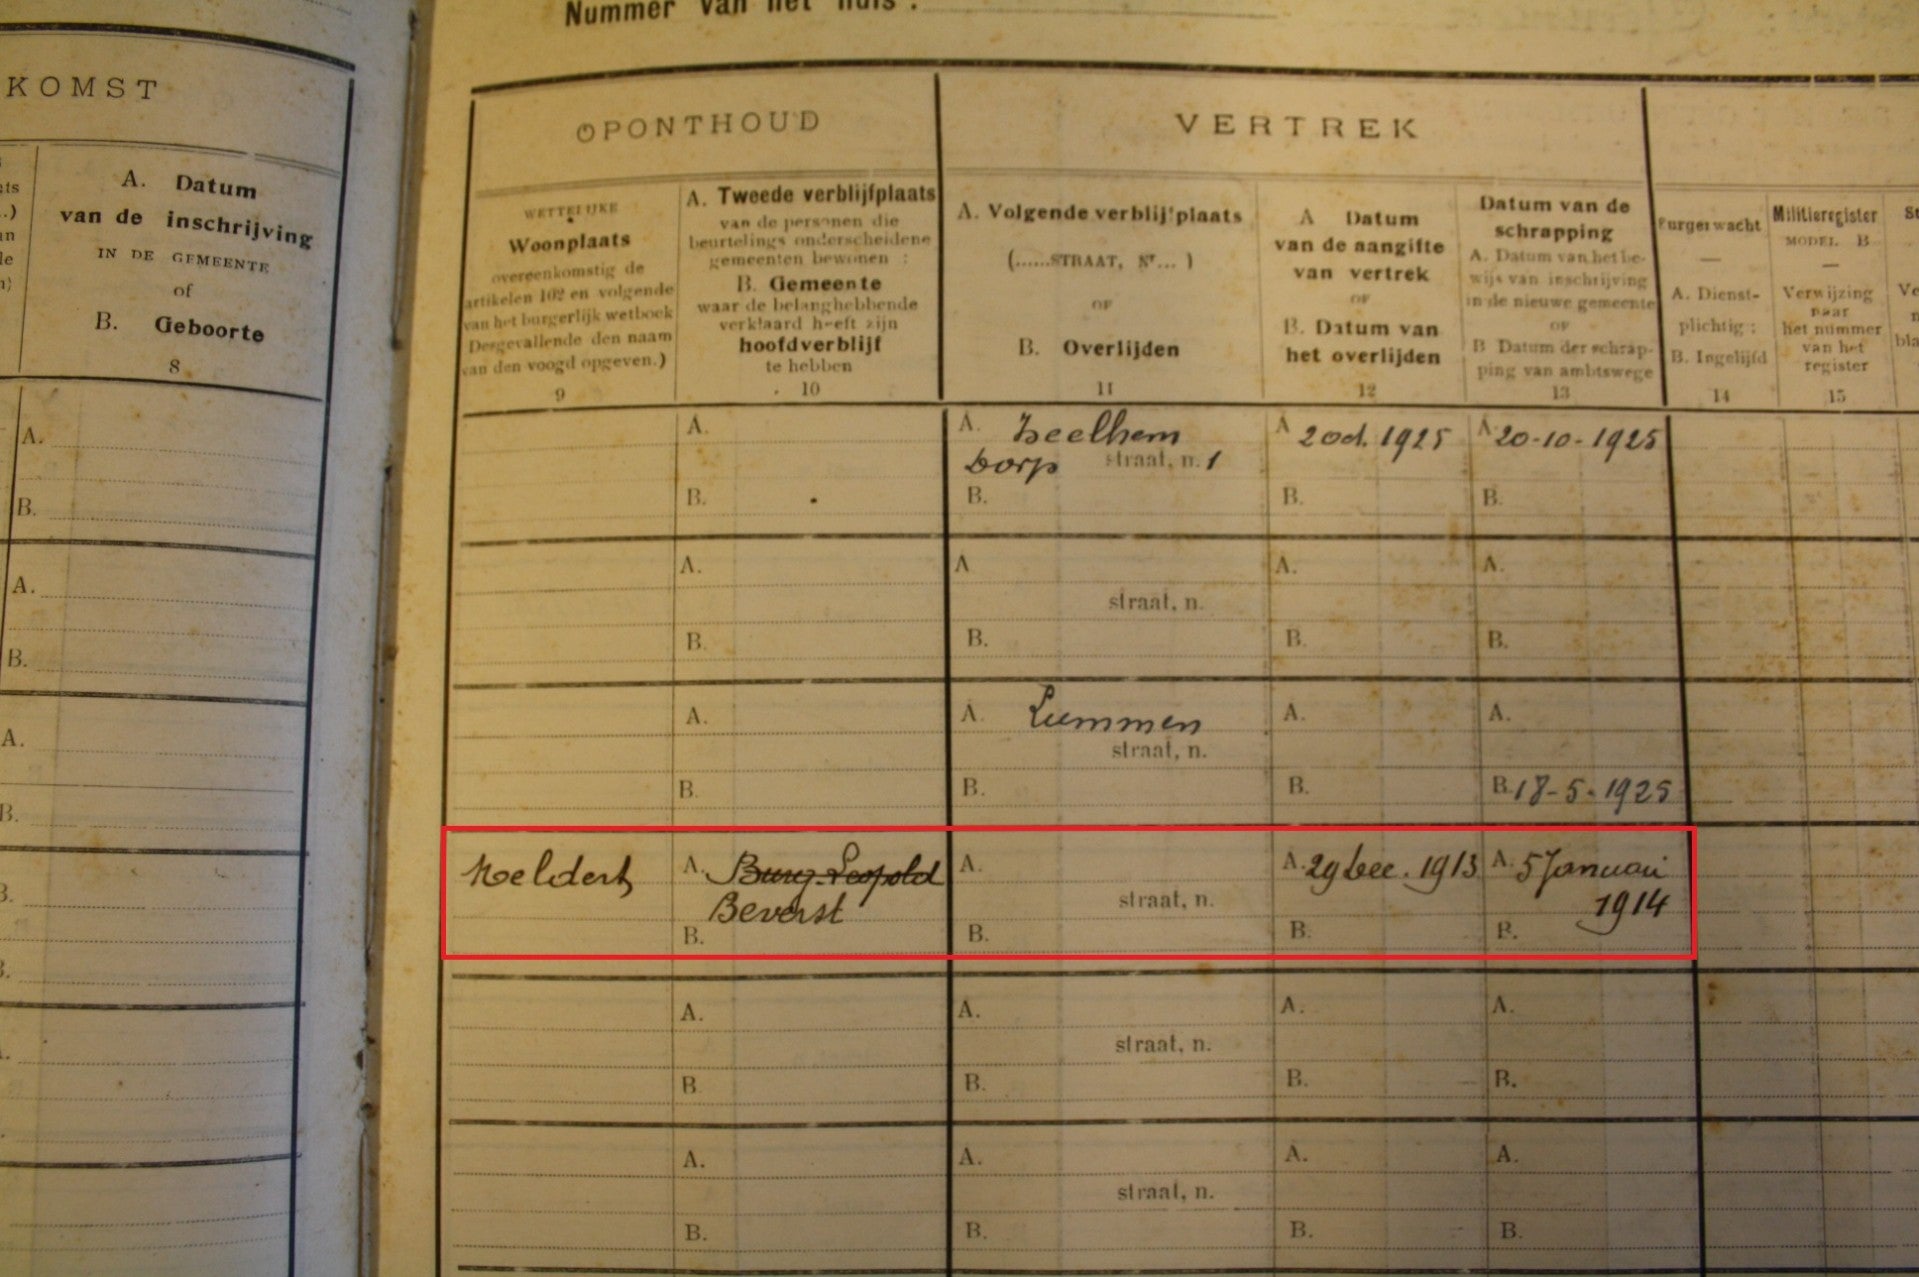 Nummer van het huis :
KOMST
A. Datum
van de inschrijving
IN DE GEMEENTE
of
B. Geboorte
8
OPONTHOUD
VERTREK
WETTELIJKE
Woonplaats
overeenkomstig de
artikelen 102 en volgende
van het burgerlijk wetboek
Desgevallende den naam
van den voogd opgeven.)
9
A. Tweede verblijfplaats
van de personen die
beurtelings onderscheidene
gemeenten bewonen :
B. Gemeente
waar de belanghebbende
verklaard heeft zijn
hoofdverblijf
te hebben
10
A. Volgende verblijfplaats
(......STRAAT, Nr... )
OF
B. Overlijden
11
A Datum
van de aangifte
van vertrek
OF
B. Datum van
het overlijden
12
Datum van de
schrapping
A. Datum van het be-
wijs van inschrijving
in de nieuwe gemeente
OF
B Datum der schrap-
ping van ambtswege
13
Burgerwacht
A. Dienst-
plichtig :
B. Ingelijfd
14
Militieregister
MODEL B
Verwijzing
naar
het nummer
van het
register
15
A. A. A. Zeelhem A 20 oct. 1925 A 20-10-1925
Dorp straat, n. 1
B. B. B. B. B.
A. A. A A. A.
straat, n.
B. B. B. B. B.
A. A. A. Lummen A. A.
straat, n.
B. B. B. B. B. 18-5-1925
Meldert A. Burg. Leopold A. A. 29 Dec. 1913 A. 5 Januari
Beverst straat, n. 1914
B. B. B. B. B.
A. A. A. A.
straat, n.
B. B. B. B.
A. A. A. A.
straat, n.
B. B. B. B.